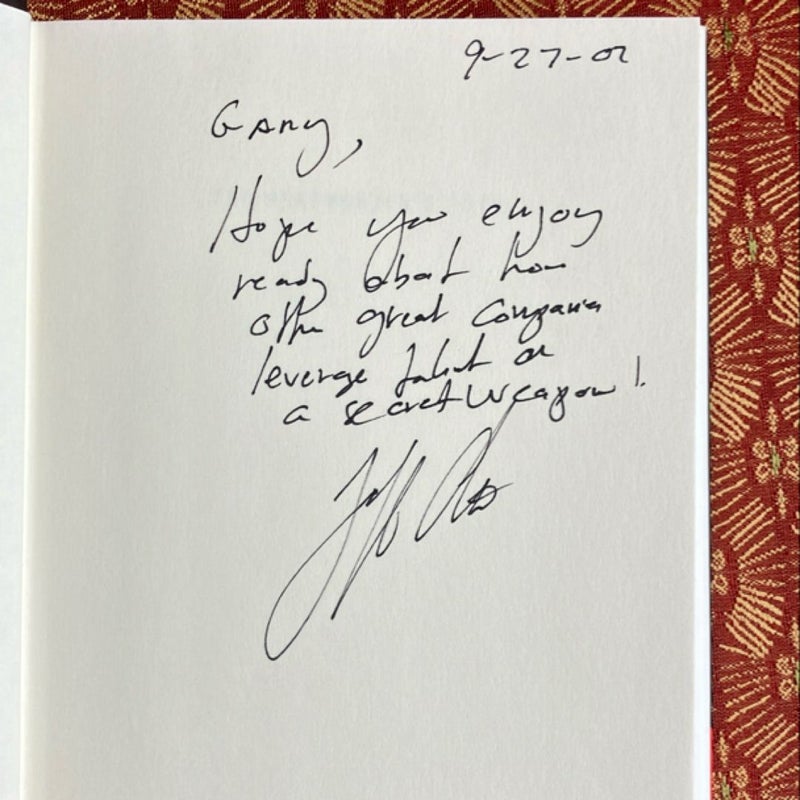 9-27-02
Gary,
Hope you enjoy
ready about how
other great companies
leverage talent as
a secret weapon!